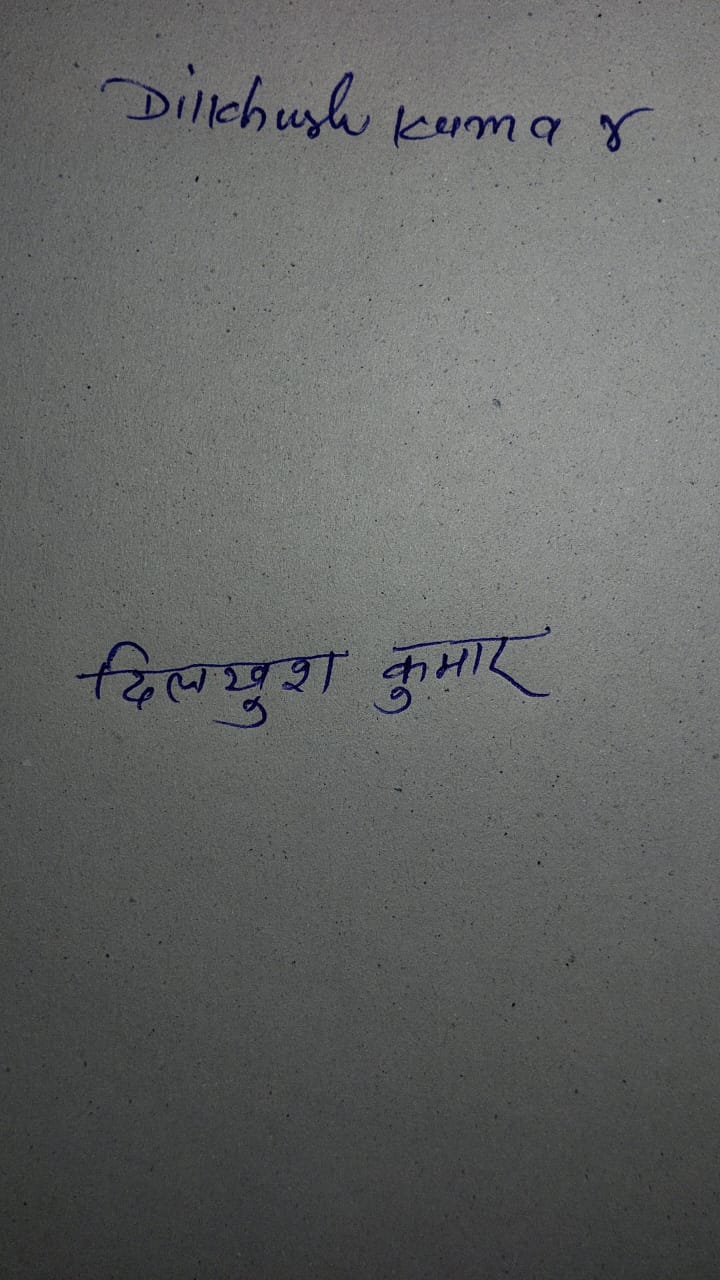 Dilkhush kumar
दिलखुश कुमार